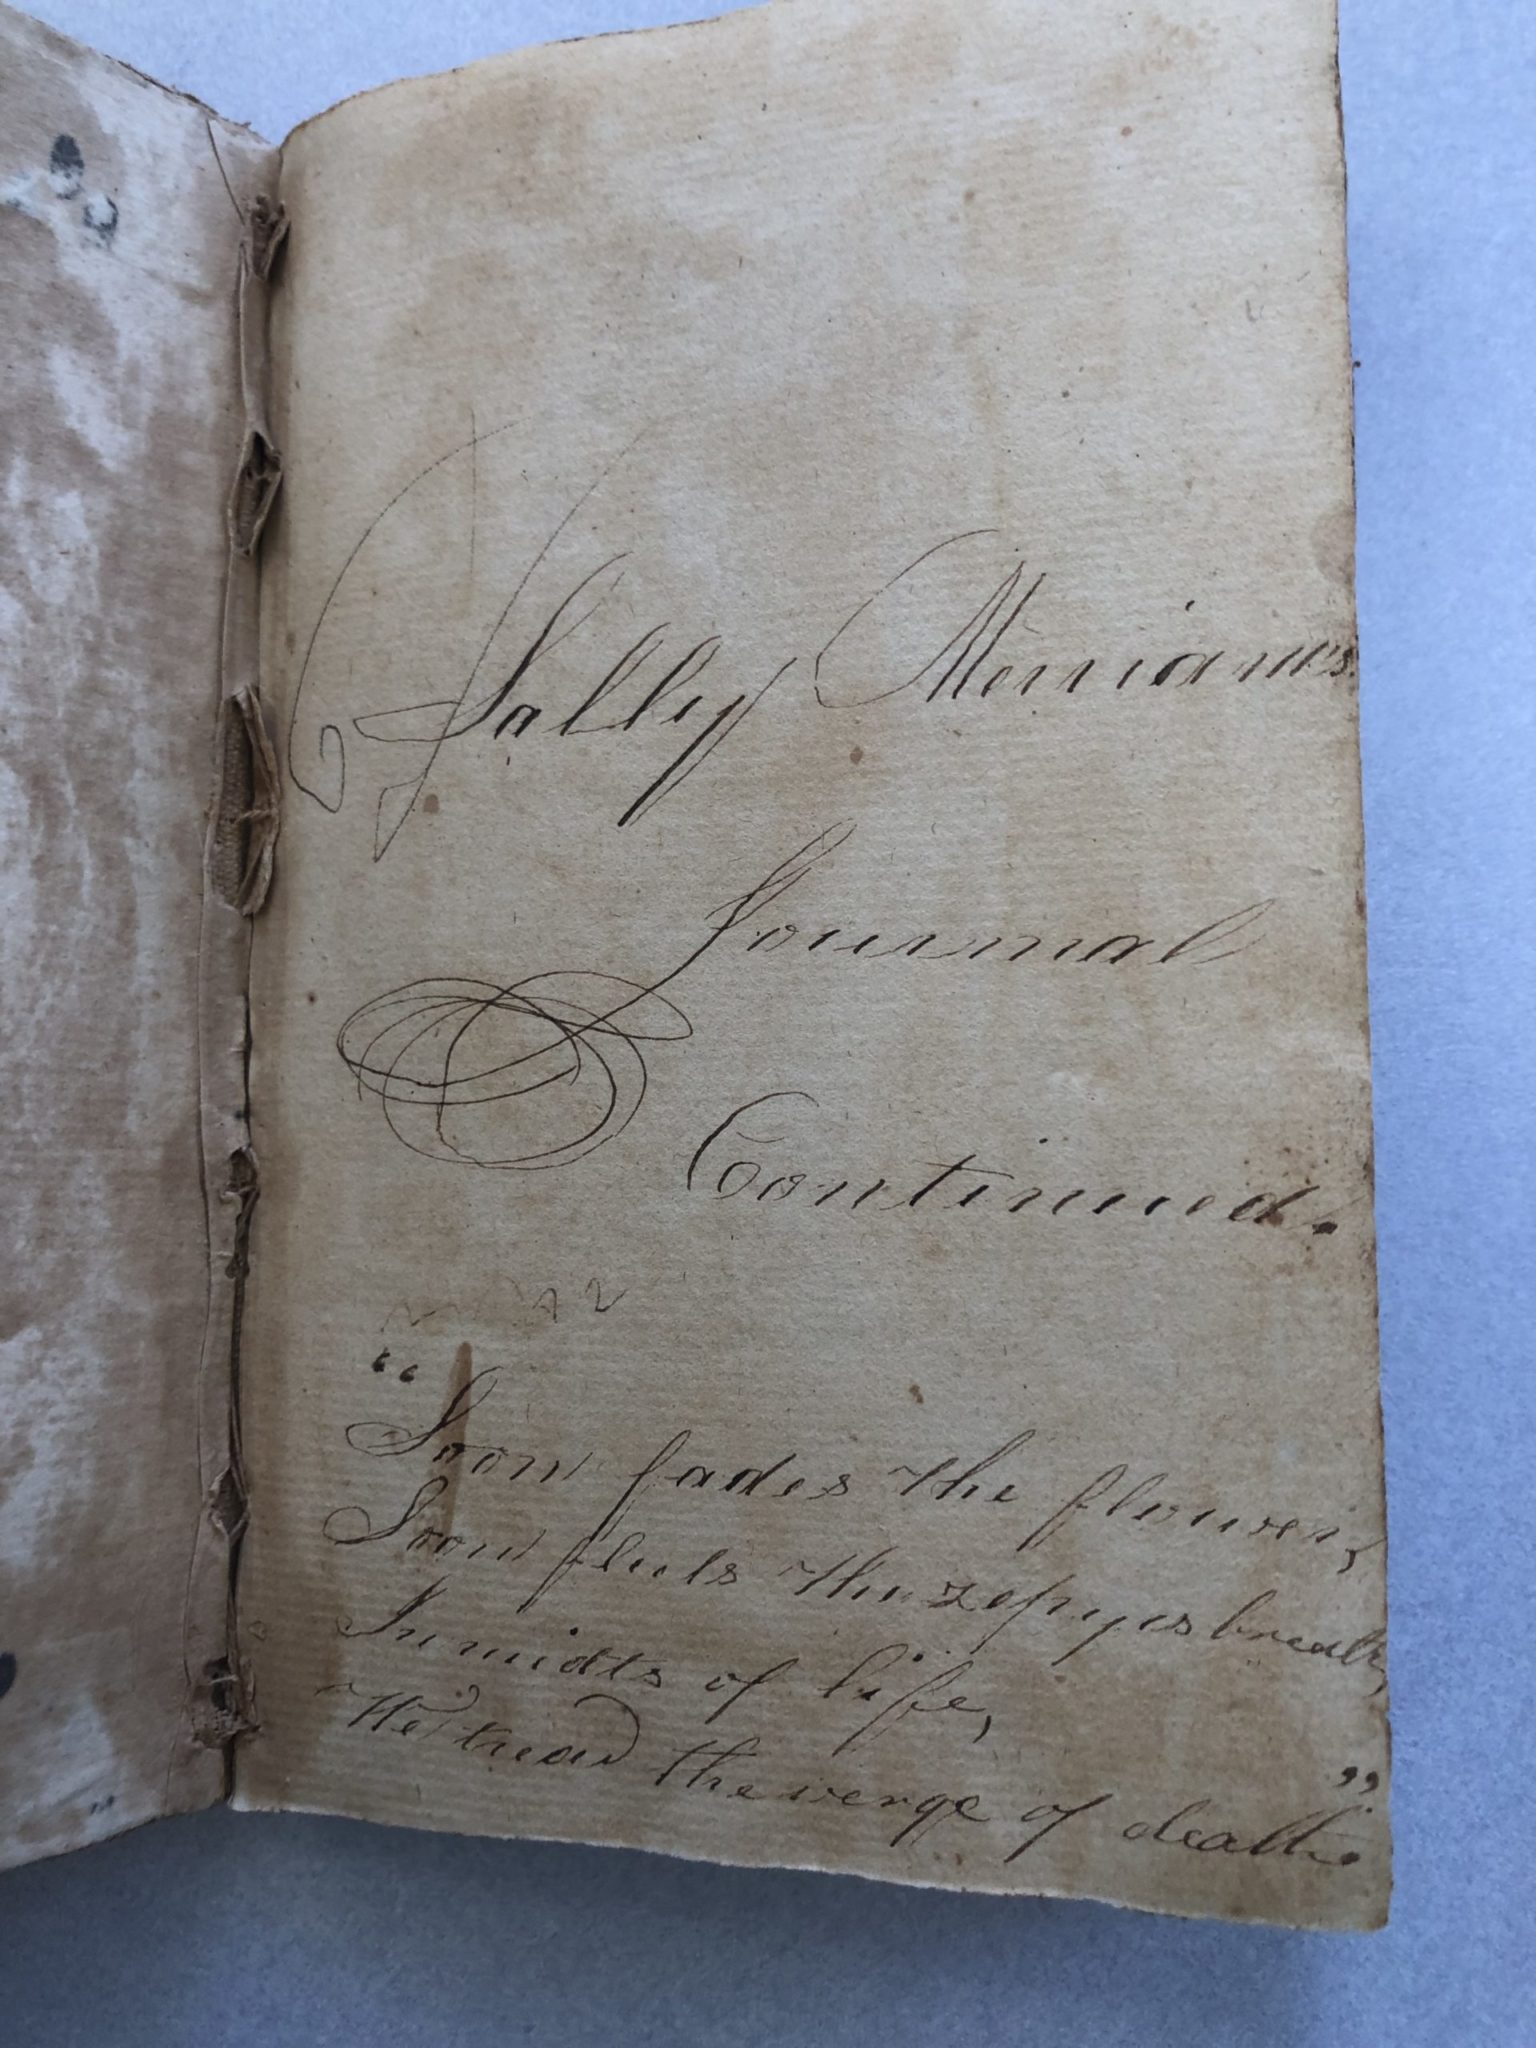 Sally Merriam's
Journal
Continued.
"Soon fades the flower,
Soon fleets the zepyrs breath,
In midts of life,
We tread the verge of death."